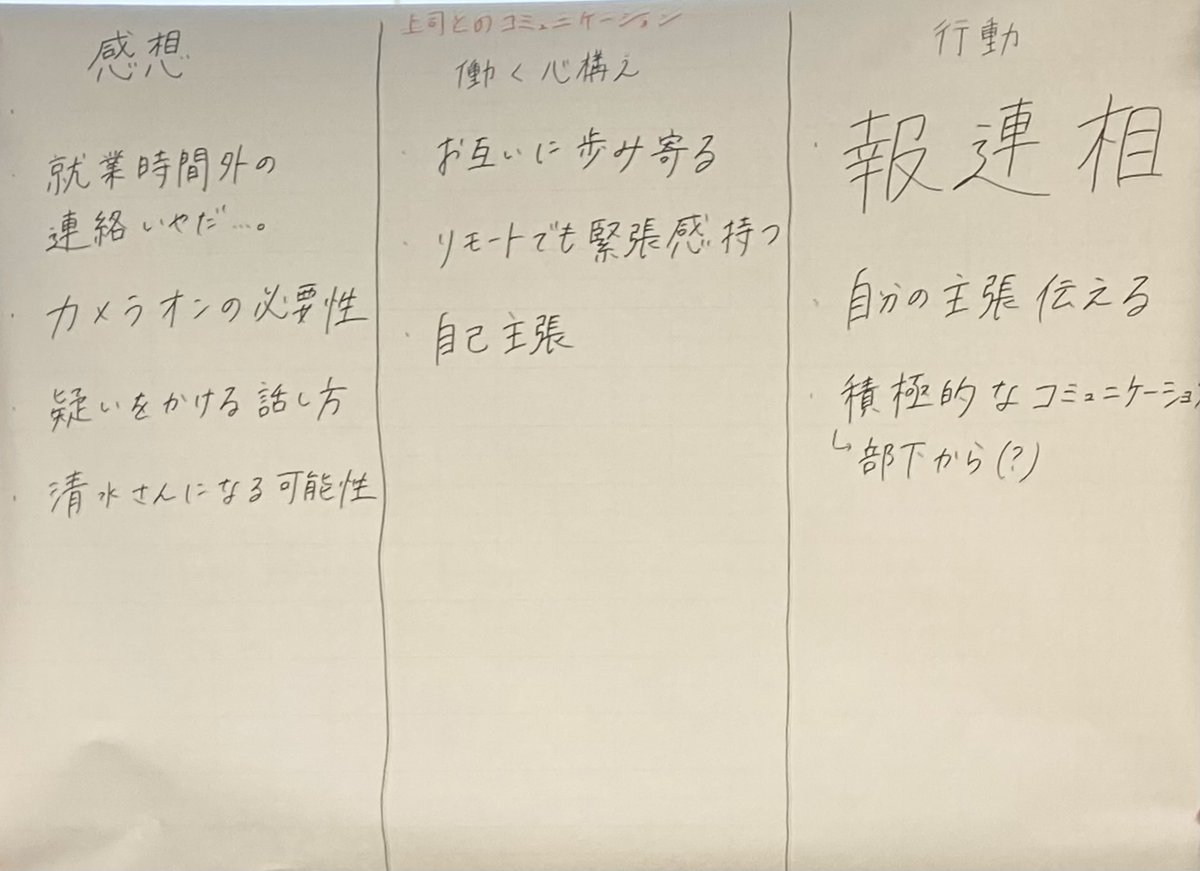 感想
・就業時間外の
連絡いやだ…。
・カメラオンの必要性
・疑いをかける話し方
・清水さんになる可能性
上司とのコミュニケーション
働く心構え
・お互いに歩み寄る
・リモートでも緊張感持つ
・自己主張
行動
・報連相
・自分の主張伝える
・積極的なコミュニケーション
↳部下から(?)